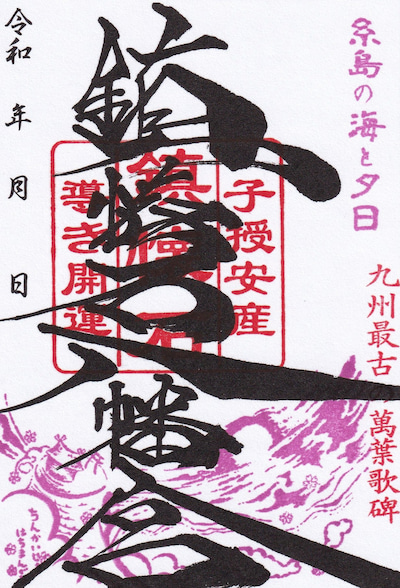 糸島の海と夕日
九州最古の萬葉歌碑
子授安産
鎮懐石
導き開運
鎮懐石八幡宮
令和 年 月 日
ちんかい
はちまん